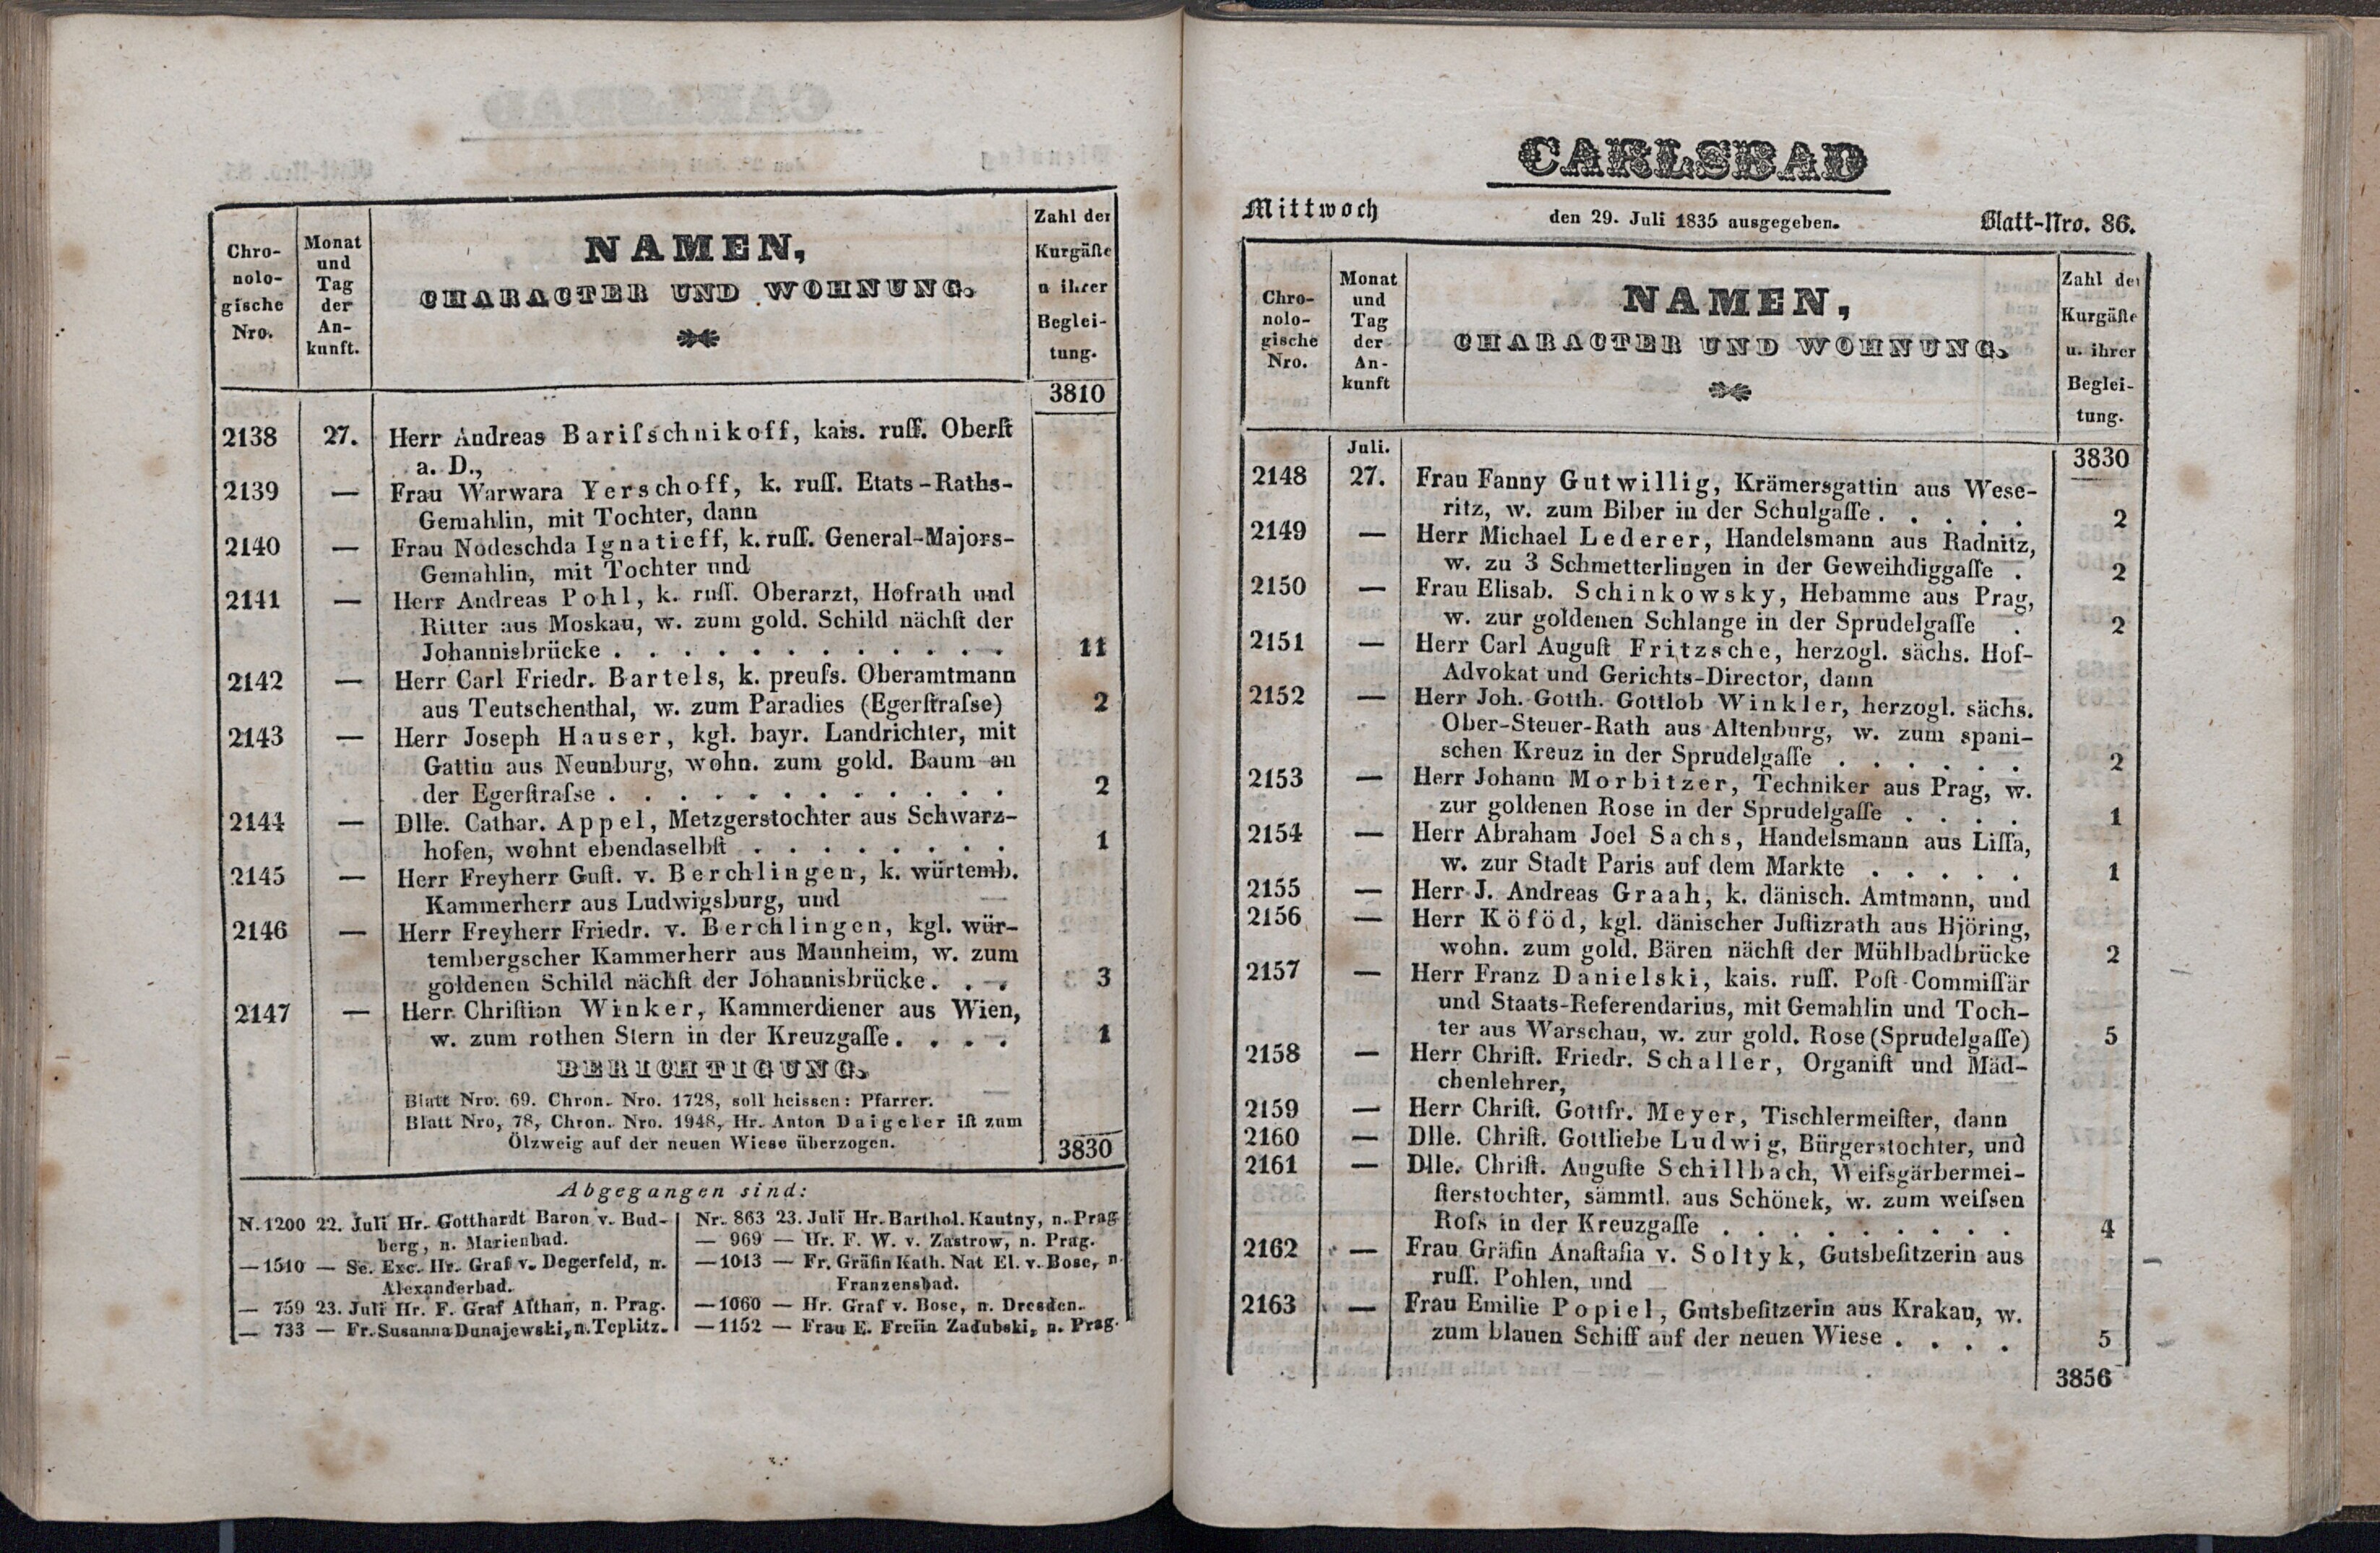 Chro-
nolo-
gische
Nro.
Monat
und
Tag
der
An-
kunft.
NAMEN,
CHARACTER UND WOHNUNG.
Zahl der
Kurgäſte
u ihrer
Beglei-
tung.
3810
2138 27. Herr Andreas Bariſschnikoff, kais. ruſſ. Oberſt
a. D.,
2139 — Frau Warwara Yerschoff, k. ruſſ. Etats-Raths-
Gemahlin, mit Tochter, dann
2140 — Frau Nodeschda Ignatieff, k. ruſſ. General-Majors-
Gemahlin, mit Tochter und
2141 — Herr Andreas Pohl, k. ruſſ. Oberarzt, Hofrath und
Ritter aus Moskau, w. zum gold. Schild nächſt der
Johannisbrücke . . . . . . . . . . . . 11
2142 — Herr Carl Friedr. Bartels, k. preuſs. Oberamtmann
aus Teutschenthal, w. zum Paradies (Egerſtraſse) 2
2143 — Herr Joseph Hauser, kgl. bayr. Landrichter, mit
Gattin aus Neunburg, wohn. zum gold. Baum an
der Egerſtraſse . . . . . . . . . . . . 2
2144 — Dlle. Cathar. Appel, Metzgerstochter aus Schwarz-
hofen, wohnt ebendaselbſt . . . . . . . . 1
2145 — Herr Freyherr Guſt. v. Berchlingen, k. würtemb.
Kammerherr aus Ludwigsburg, und
2146 — Herr Freyherr Friedr. v. Berchlingen, kgl. wür-
tembergscher Kammerherr aus Mannheim, w. zum
goldenen Schild nächſt der Johannisbrücke. . . 3
2147 — Herr Chriſtian Winker, Kammerdiener aus Wien,
w. zum rothen Stern in der Kreuzgaſſe. . . . 1
BERICHTIGUNG.
Blatt Nro. 69. Chron. Nro. 1728, soll heissen: Pfarrer.
Blatt Nro, 78, Chron. Nro. 1948, Hr. Anton Daigeler iſt zum
Ölzweig auf der neuen Wiese überzogen. 3830
Abgegangen sind:
N. 1200 22. Juli Hr. Gotthardt Baron v. Bud-
berg, n. Marienbad.
— 1510 — Se. Exc. Hr. Graf v. Degerfeld, n.
Alexanderbad.
— 759 23. Juli Hr. F. Graf Althan, n. Prag.
— 733 — Fr. Susanna Dunajewski, n. Teplitz.
Nr. 863 23. Juli Hr. Barthol. Kautny, n. Prag
— 969 — Hr. F. W. v. Zastrow, n. Prag.
— 1013 — Fr. Gräfin Kath. Nat El. v. Bose, n.
Franzensbad.
— 1060 — Hr. Graf v. Bose, n. Dresden.
— 1152 — Frau E. Freiin Zadubski, n. Prag.
CARLSBAD
Mittwoch den 29. Juli 1835 ausgegeben. Blatt-Nro. 86.
Chro-
nolo-
gische
Nro.
Monat
und
Tag
der
An-
kunft
NAMEN,
CHARACTER UND WOHNUNG.
Zahl der
Kurgäſte
u. ihrer
Beglei-
tung.
Juli. 3830
2148 27. Frau Fanny Gutwillig, Krämersgattin aus Wese-
ritz, w. zum Biber in der Schulgaſſe . . . . . 2
2149 — Herr Michael Lederer, Handelsmann aus Radnitz,
w. zu 3 Schmetterlingen in der Geweihdiggaſſe . 2
2150 — Frau Elisab. Schinkowsky, Hebamme aus Prag,
w. zur goldenen Schlange in der Sprudelgaſſe . 2
2151 — Herr Carl Auguſt Fritzsche, herzogl. sächs. Hof-
Advokat und Gerichts-Director, dann
2152 — Herr Joh. Gotth. Gottlob Winkler, herzogl. sächs.
Ober-Steuer-Rath aus Altenburg, w. zum spani-
schen Kreuz in der Sprudelgaſſe . . . . . . 2
2153 — Herr Johann Morbitzer, Techniker aus Prag, w.
zur goldenen Rose in der Sprudelgaſſe . . . . 1
2154 — Herr Abraham Joel Sachs, Handelsmann aus Liſſa,
w. zur Stadt Paris auf dem Markte . . . . . 1
2155 — Herr J. Andreas Graah, k. dänisch. Amtmann, und
2156 — Herr Köföd, kgl. dänischer Juſtizrath aus Hjöring,
wohn. zum gold. Bären nächſt der Mühlbadbrücke 2
2157 — Herr Franz Danielski, kais. ruſſ. Poſt-Commiſſär
und Staats-Referendarius, mit Gemahlin und Toch-
ter aus Warschau, w. zur gold. Rose (Sprudelgaſſe) 5
2158 — Herr Chriſt. Friedr. Schaller, Organiſt und Mäd-
chenlehrer,
2159 — Herr Chriſt. Gottfr. Meyer, Tischlermeiſter, dann
2160 — Dlle. Chriſt. Gottliebe Ludwig, Bürgerstochter, und
2161 — Dlle. Chriſt. Auguſte Schillbach, Weiſsgärbermei-
ſterstochter, sämmtl. aus Schönek, w. zum weiſsen
Roſs in der Kreuzgaſſe . . . . . . . . . 4
2162 — Frau Gräfin Anaſtaſia v. Soltyk, Gutsbeſitzerin aus
ruſſ. Pohlen, und
2163 — Frau Emilie Popiel, Gutsbeſitzerin aus Krakau, w.
zum blauen Schiff auf der neuen Wiese . . . . 5
3856